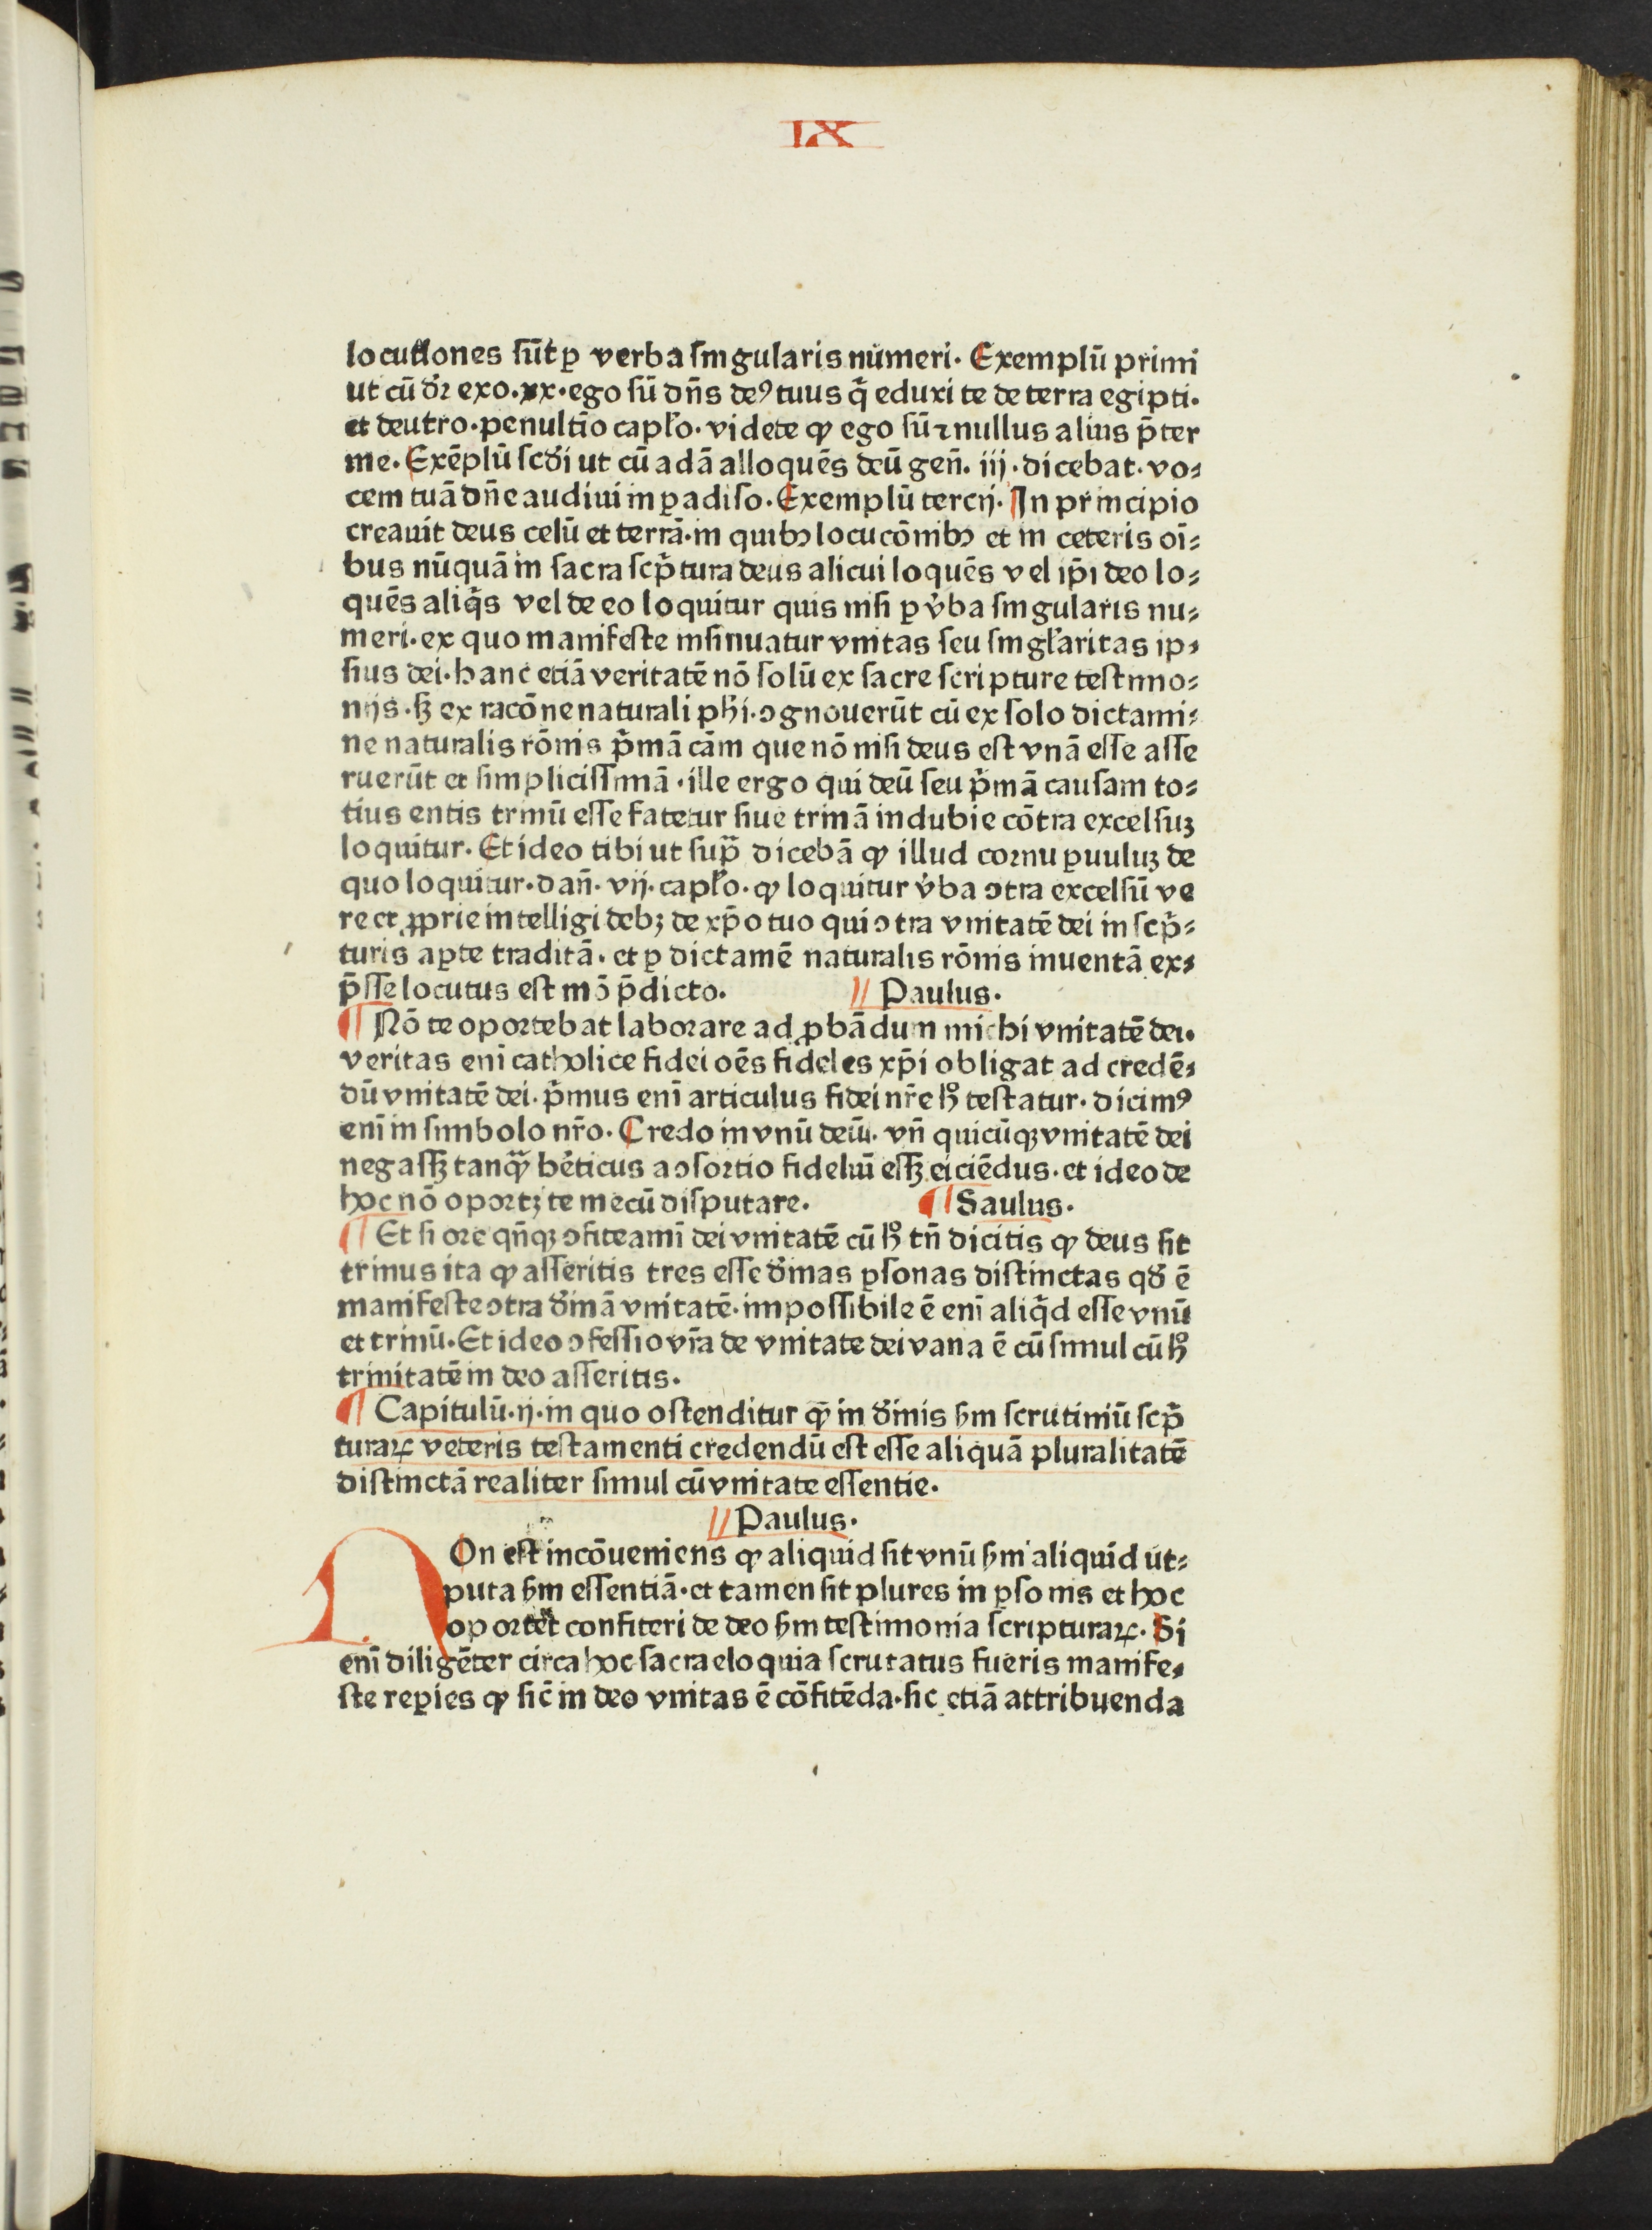 IX
locutiones sūt ꝑ verba singularis numeri. Exemplū primi
ut cū dr̄ exo. xx. ego sū dn̄s deꝰ tuus q̄ eduxi te de terra egipti.
et deutro. penultīo capło. videte ꝙ ego sū ⁊ nullus alius p̄ter
me. Exēplū scd̄i ut cū adā alloquēs deū gen̄. iij. dicebat. vo⸗
cem tuā dn̄e audiui in ꝑadiso. Exemplū tercij. In principio
creauit deus celū et terrā. in quibꝫ locucōnibꝫ et in ceteris oī⸗
bus nūquā in sacra scp̄tura deus alicui loquēs vel ip̄i deo lo⸗
quēs aliq̄s vel de eo loquitur quis nisi ꝑ v̄ba singularis nu⸗
meri. ex quo manifeste insinuatur vnitas seu singłaritas ip⸗
sius dei. hanc etiā veritatē nō solū ex sacre scripture testimo⸗
nijs. sꝫ ex racōne naturali ph̄i. ꝯgnouerūt cū ex solo dictami⸗
ne naturalis rōnis p̄mā cām que nō nisi deus est vnā esse asse
ruerūt et simplicissimā. ille ergo qui deū seu p̄mā causam to⸗
tius entis trinū esse fatetur siue trinā indubie cōtra excelsuꝫ
loquitur. Et ideo tibi ut sup̄ dicebā ꝙ illud cornu ꝑuuluꝫ de
quo loquitur. dan̄. vij. capło. ꝙ loquitur v̄ba ꝯtra excelsū ve
re et ꝓprie intelligi debꝫ de xp̄o tuo qui ꝯtra vnitatē dei in scp̄⸗
turis aꝑte traditā. et ꝑ dictamē naturalis rōnis inuentā ex⸗
p̄sse locutus est mō p̄dicto. // Paulus.
¶ Nō te oportebat laborare ad ꝓbādum michi vnitatē dei.
veritas enī catholice fidei oēs fideles xp̄i obligat ad credē⸗
dū vnitatē dei. p̄mus enī articulus fidei nr̄e hͦ testatur. dicimꝰ
enī in simbolo nr̄o. Credo in vnū deū. vn̄ quicūqꝫ vnitatē dei
negassꝫ tanqͣꝫ hēticus a ꝯsortio fideliū essꝫ eiciēdus. et ideo de
hoc nō oportꝫ te mecū disputare. ¶ Saulus.
¶ Et si ore qn̄qꝫ ꝯfiteamī dei vnitatē cū hͦ tn̄ dicitis ꝙ deus sit
trinus ita ꝙ asseritis tres esse d̄inas ꝑsonas distinctas qd̄ ē
manifeste ꝯtra d̄inā vnitatē. impossibile ē enī aliq̄d esse vnū
et trinū. Et ideo ꝯfessio vr̄a de vnitate dei vana ē cū simul cū hͦ
trinitatē in deo asseritis.
¶ Capitulū. ij. in quo ostenditur ꝙ in d̄inis s̄m scrutiniū scp̄
turaꝝ veteris testamenti credendū est esse aliquā pluralitatē
distinctā realiter simul cū vnitate essentie.
// Paulus.
NOn est incōueniens ꝙ aliquid sit vnū s̄m aliquid ut⸗
puta s̄m essentiā. et tamen sit plures in ꝑsonis et hoc
oportet confiteri de deo s̄m testimonia scripturaꝝ. Si
enī diligēter circa hoc sacra eloquia scrutatus fueris manife⸗
ste reꝑies ꝙ sic̄ in deo vnitas ē cōfitēda. sic etiā attribuenda